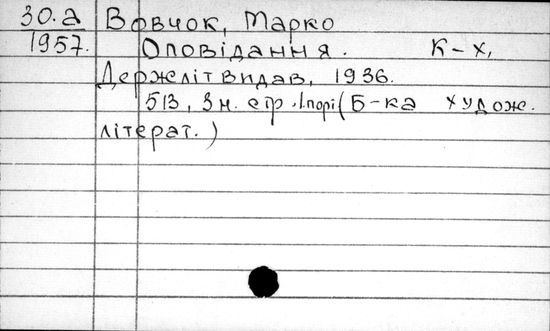 30.а Вовчок, Марко
1957. Оповідання. К-х,
Держлітвидав, 1936.
513, 3 н. стр. 1 порі (Б-ка худож.
літерат.)